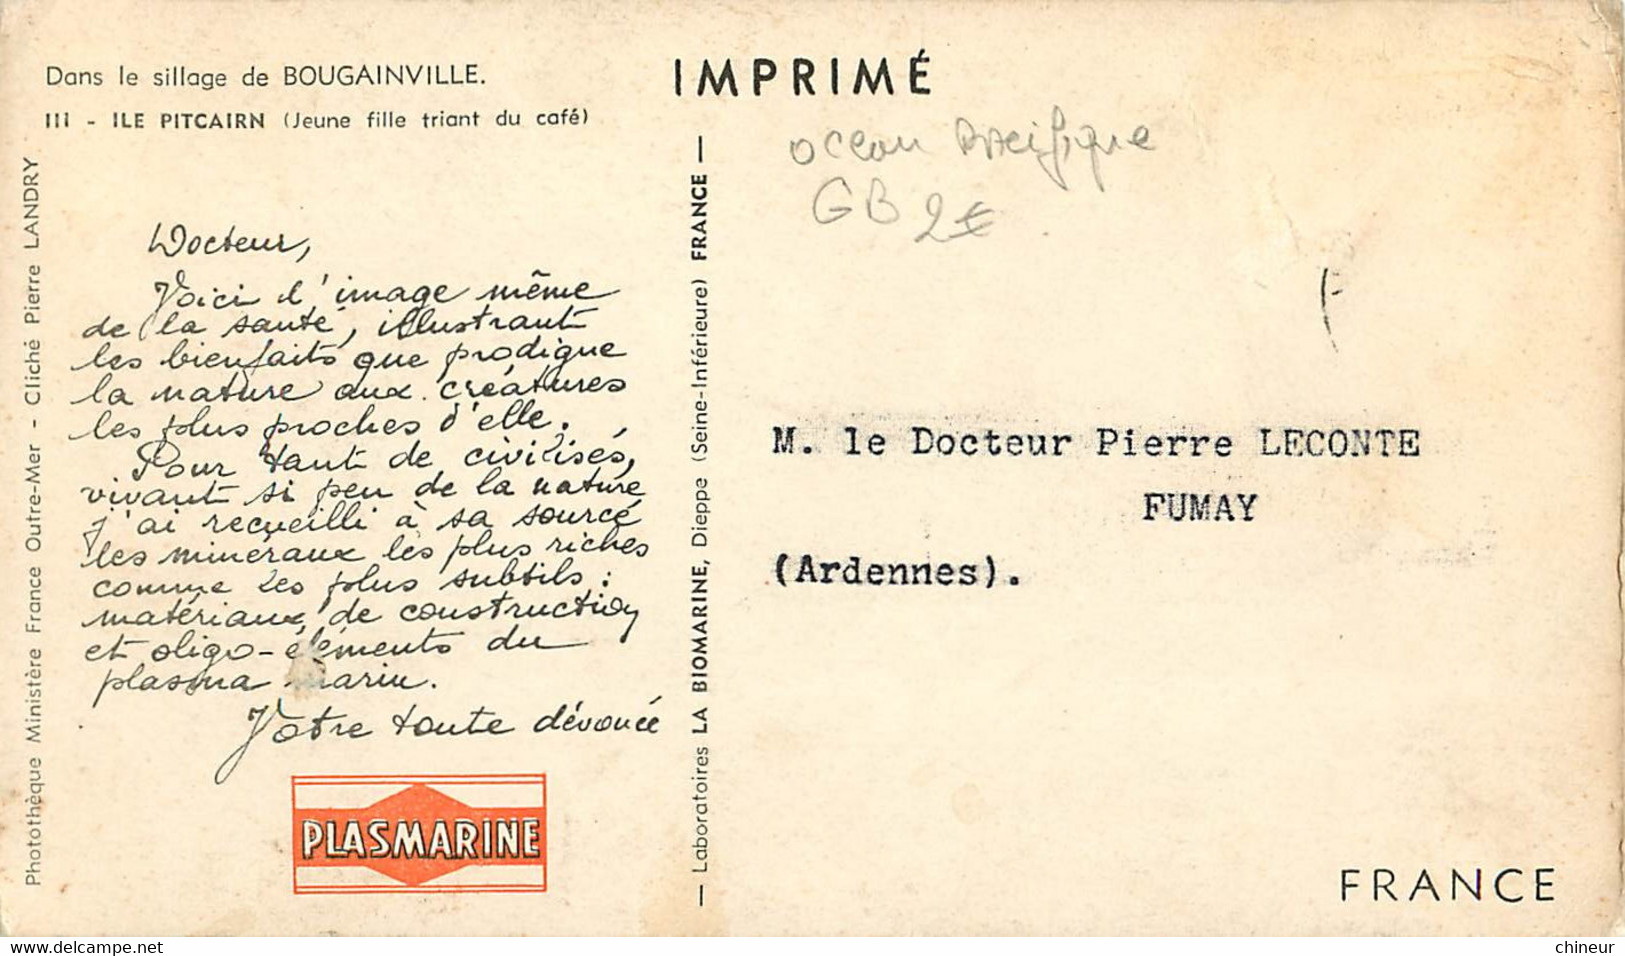 Dans le sillage de BOUGAINVILLE.
III - ILE PITCAIRN (Jeune fille triant du café)
Photothèque Ministère France Outre-Mer - Cliché Pierre LANDRY
Docteur,
Voici l'image même
de la santé, illustrant
les bienfaits que prodigue
la nature aux créatures
les plus proches d'elle.
Pour tant de civilisés,
vivant si peu de la nature
j'ai recueilli à sa source
les minéraux les plus riches
comme les plus subtils :
matériaux de construction
et oligo-éléments du
plasma marin.
Votre toute dévouée
PLASMARINE
— Laboratoires LA BIOMARINE, Dieppe (Seine-Inférieure) FRANCE —
IMPRIMÉ
ocean Pacifique
GB 2€
F
M. le Docteur Pierre LECONTE
FUMAY
(Ardennes).
FRANCE
www.delcampe.net
chineur